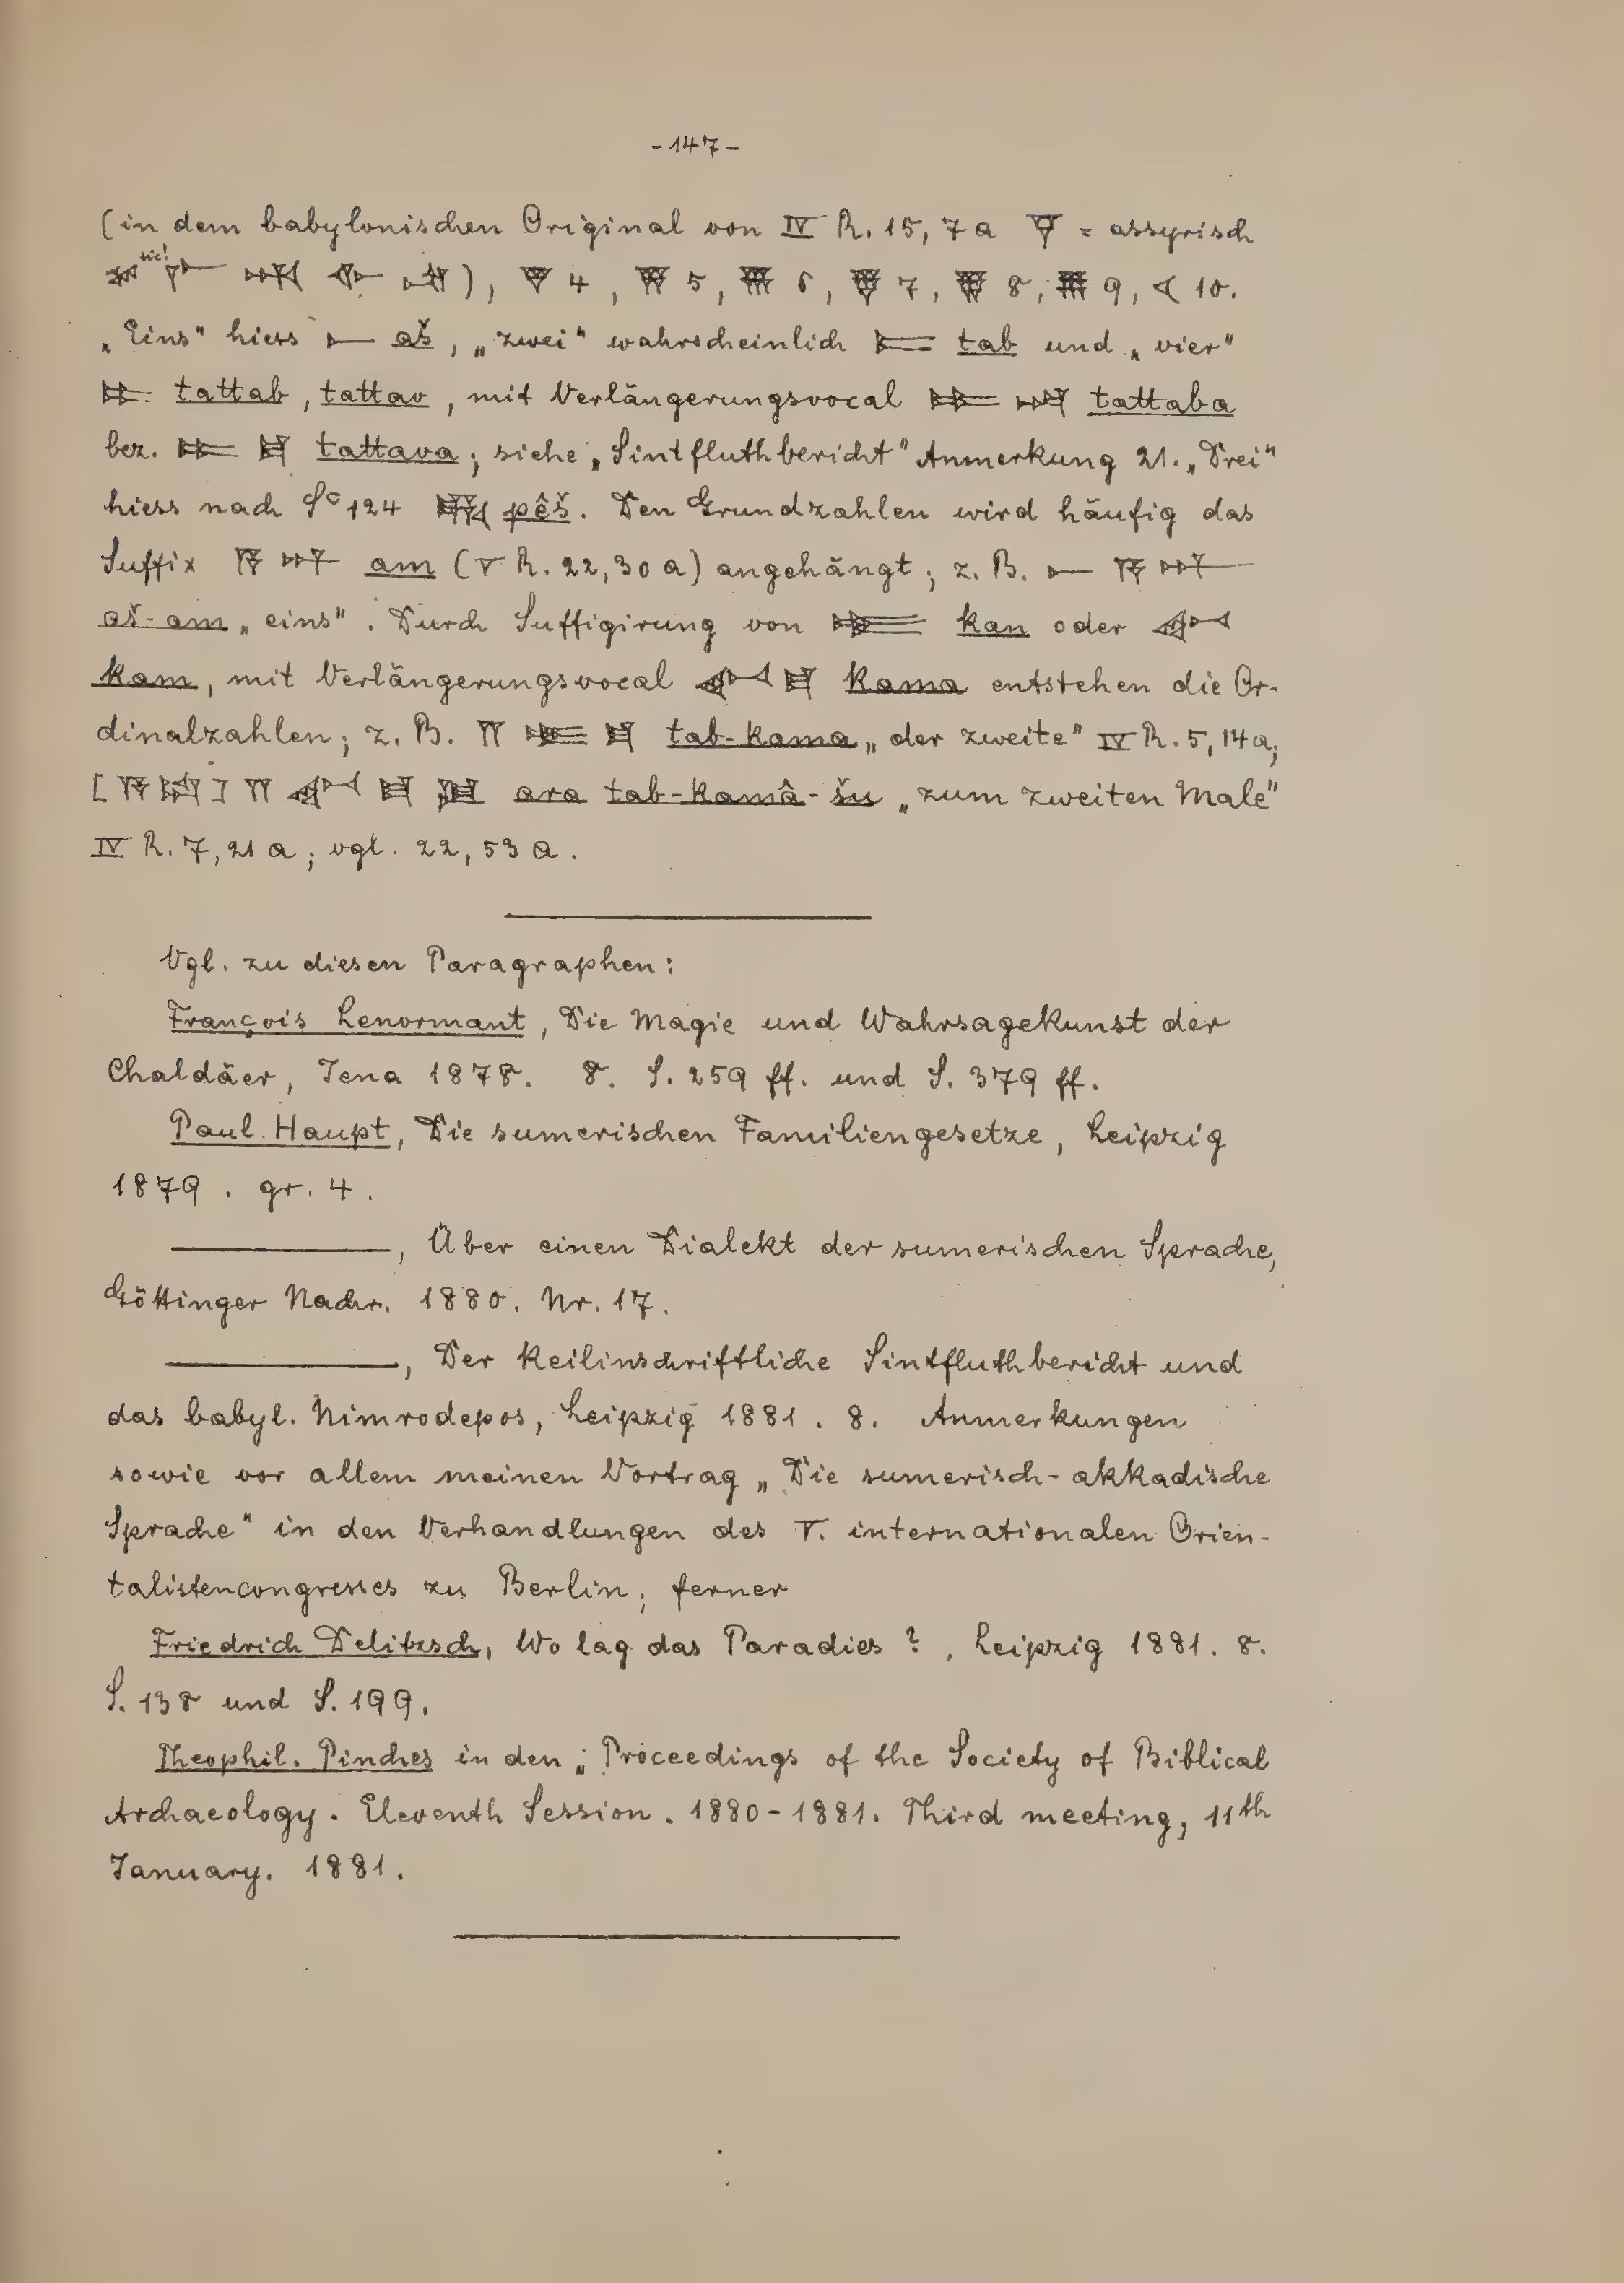 -147-
(in dem babylonischen Original von IV R. 15, 7a 𒐈 = assyrisch
sic!
), 𒐉 4, 𒐊 5, 𒐋 6, 𒐌 7, 𒐍 8, 𒐎 9, 𒌋 10.
„Eins" hiess 𒀸 aš, „zwei" wahrscheinlich 𒋰 tab und „vier"
tattab, tattav, mit Verlängerungsvocal tattaba
bez. tattava; siehe „Sintfluthbericht" Anmerkung 21. „Drei"
hiess nach Sᶜ 124 pêš. Den Grundzahlen wird häufig das
Suffix 𒀀𒀭 am (V R. 22, 30 a) angehängt; z. B. 𒀸 𒀀𒀭
aš-am „eins". Durch Suffigirung von kan oder
kam, mit Verlängerungsvocal kama entstehen die Or-
dinalzahlen; z. B. 𒈫 tab-kama „der zweite" IV R. 5, 14a;
[𒀀 ] 𒈫 ara tab-kamâ-šu „zum zweiten Male"
IV R. 7, 21 a; vgl. 22, 53 a.
Vgl. zu diesen Paragraphen:
François Lenormant, Die Magie und Wahrsagekunst der
Chaldäer, Jena 1878. 8. S. 259 ff. und S. 379 ff.
Paul Haupt, Die sumerischen Familiengesetze, Leipzig
1879. gr. 4.
————, Über einen Dialekt der sumerischen Sprache,
Göttinger Nachr. 1880. Nr. 17.
————, Der keilinschriftliche Sintfluthbericht und
das babyl. Nimrodepos, Leipzig 1881. 8. Anmerkungen
sowie vor allem meinen Vortrag „Die sumerisch-akkadische
Sprache" in den Verhandlungen des V. internationalen Orien-
talistencongresses zu Berlin; ferner
Friedrich Delitzsch, Wo lag das Paradies?, Leipzig 1881. 8.
S. 138 und S. 199.
Theophil. Pinches in den „Proceedings of the Society of Biblical
Archaeology. Eleventh Session. 1880-1881. Third meeting, 11th
January. 1881.